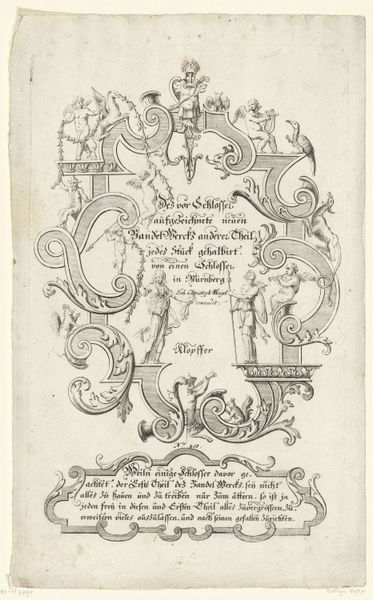 Des vor Schlosser
aufgezeichnete neuen
Bandel-Wercks anderer Theil,
jedes Stück gehalbirt.
von einen Schlosser
in Nürnberg
Joh. Christoph Weigel
excudit.
Klopffer
Weiln einige Schlosser davor ge-
achtet, der Erste Theil des Bandel Wercks, seÿ nicht
alles zu hauen und zu treiben nur zum ättzen. so ist ja
jeden freÿ in diesen und Ersten Theil alles zuvergrößern, zu
erweitern vieles auszulassen, und nach seinen gefallen zurichten.